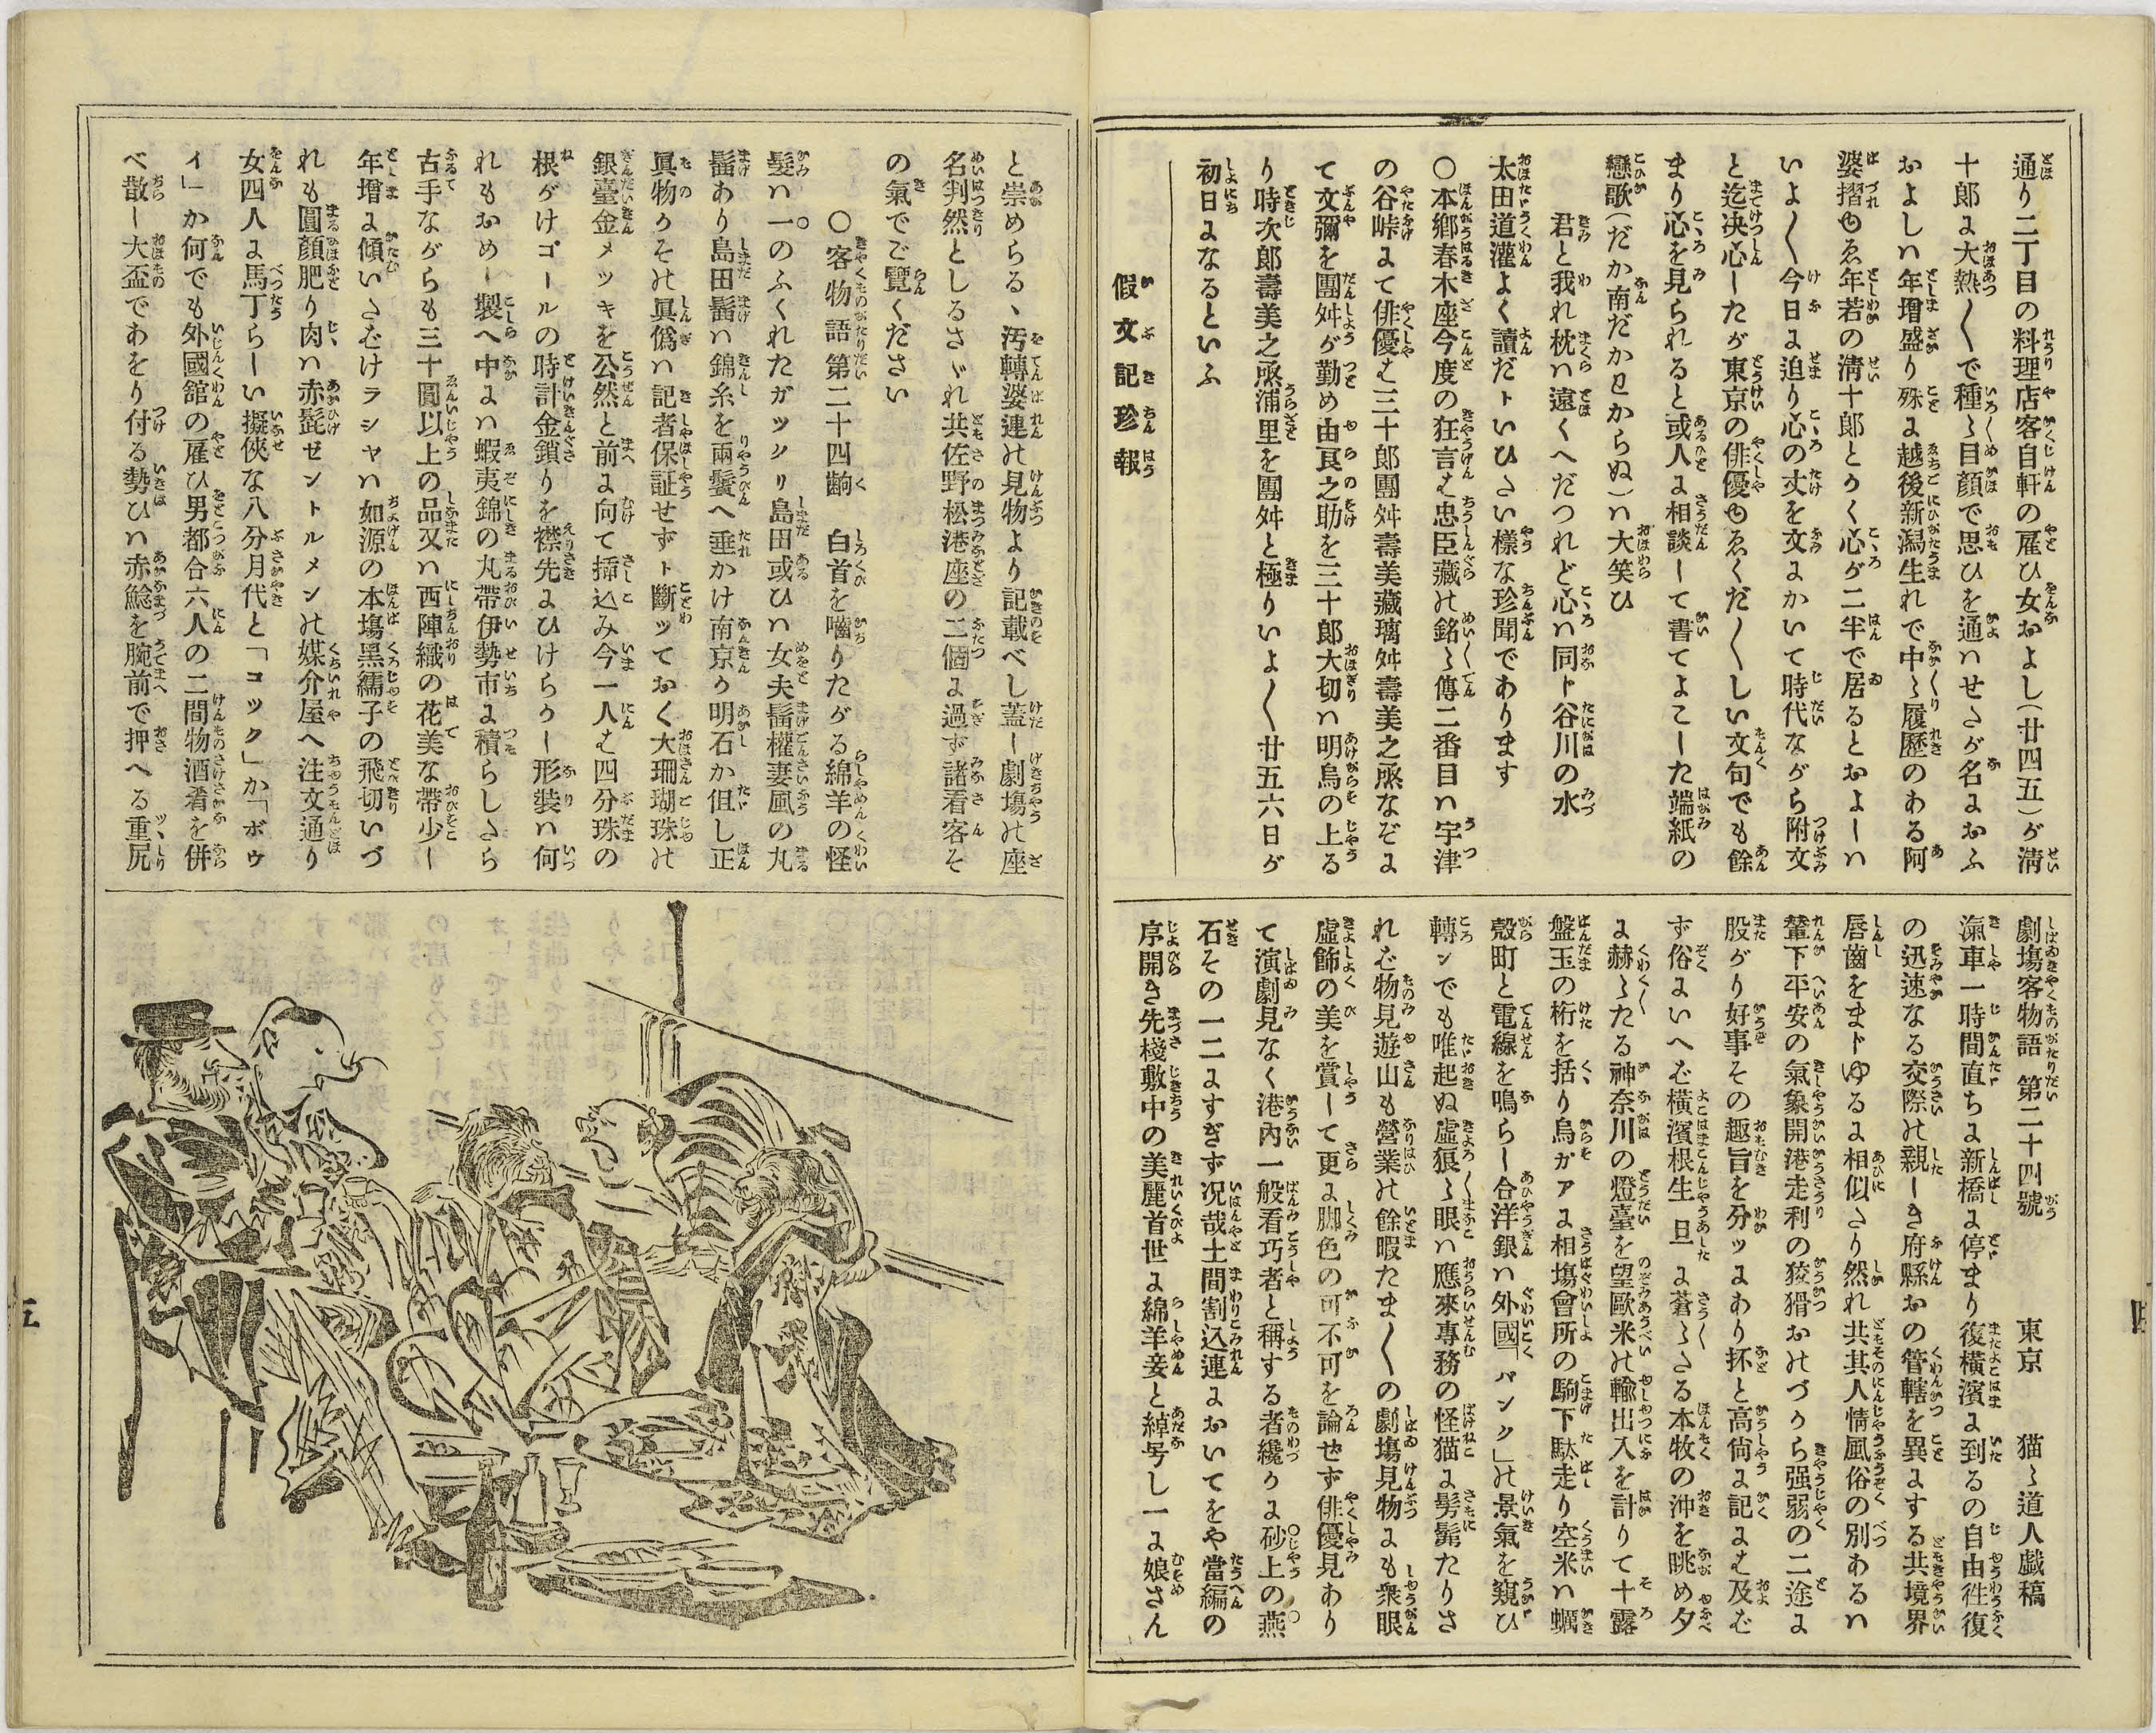 通り二丁目の料理店客自軒の雇ひ女およし(廿四五)が淸
十郎に大熱〱で種〻目顔で思ひを通はせたが名におふ
およしは年增盛り殊に越後新潟生れで中〻履歷のある阿
婆摺ゆゑ年若の淸十郎とかく心が二半で居るとおよしは
いよ〱今日に迫り心の丈を文にかいて時代ながら附文
と迄决心したが東京の俳優ゆゑくだ〱しい文句でも餘
まり心を見られると或人に相談して書てよこした端紙の
戀歌(だか南だかわからぬ)は大笑ひ
君と我れ枕は遠くへだつれど心は同ト谷川の水
太田道灌よく讀だトいひたい樣な珍聞であります
〇本鄕春木座今度の狂言は忠臣藏の銘〻傳二番目は宇津
の谷峠にて俳優は三十郎團舛壽美藏璃舛壽美之亟なぞに
て文彌を團舛が勤め由良之助を三十郎大切は明烏の上る
り時次郎壽美之亟浦里を團舛と極りいよ〱廿五六日が
初日になるといふ
假文記珍報
劇塲客物語 第二十四號 東京 猫〻道人戯稿
滊車一時間直ちに新橋に停まり復橫濱に到るの自由往復
の迅速なる交際の親しき府縣おの管轄を異にする共境界
唇齒をまトゆるに相似たり然れ共其人情風俗の別あるは
輦下平安の氣象開港走利の狡猾おのづから强弱の二途に
股がり好事その趣旨を分ッにあり抔と高尙に記には及ば
ず俗にいへば橫濱根生旦に蒼〻たる本牧の沖を眺め夕
に赫〻たる神奈川の燈臺を望歐米の輸出入を計りて十露
盤玉の桁を括り烏ガアに相塲會所の駒下駄走り空米は蠣
殻町と電線を鳴らし合洋銀は外國「バンク」の景氣を窺ひ
轉ンでも唯起ぬ虛狼〻眼は應來專務の怪猫に髣髴たりさ
れば物見遊山も營業の餘暇たま〱の劇塲見物にも衆眼
虛飾の美を賞して更に脚色の可不可を論ぜず俳優見あり
て演劇見なく港內一般看巧者と稱する者纔かに砂上の燕
石その一二にすぎず况哉土間割込連においてをや當編の
序開き先棧敷中の美麗首世に綿羊妾と綽号し一に娘さん
と崇めらるゝ汚轉婆連の見物より記載べし蓋し劇塲の座
名判然としるさゞれ共佐野松港座の二個に過ず諸看客そ
の氣でご覽ください
〇客物語第二十四齣 白首を嚙りたがる綿羊の怪
髮は一のふくれたガッタリ島田或ひは女夫髷權妻風の丸
髷あり島田髷は錦糸を兩鬢へ垂かけ南京か明石か但し正
眞物かその眞僞は記者保証せずト斷ッておく大珊瑚珠の
銀臺金メッキを公然と前に向て揷込み今一人は四分珠の
根がけゴールの時計金鎖りを襟先にひけらかし形裝は何
れもおめし製へ中には蝦夷錦の丸帶伊勢市に積らしたら
古手ながらも三十圓以上の品又は西陣織の花美な帶少し
年增に傾いたむけラシャは如源の本塲黑繻子の飛切いづ
れも圓顔肥り肉は赤髭ゼントルメンの媒介屋へ注文通り
女四人に馬丁らしい擬俠な八分月代と「コック」か「ボウ
イ」か何でも外國舘の雇ひ男都合六人の二間物酒肴を併
べ散し大盃であをり付る勢ひは赤鯰を腕前で押へる重尻
五